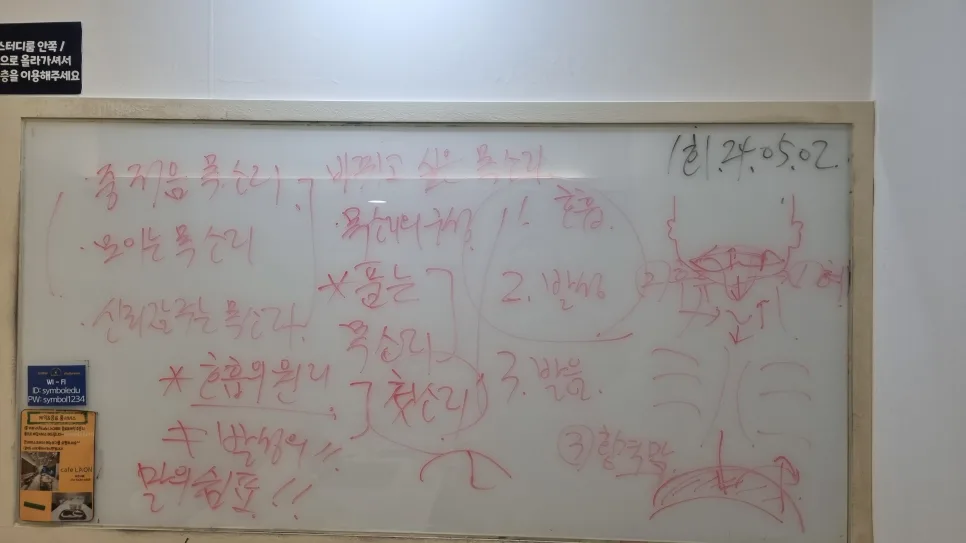 스터디룸 안쪽 /
으로 올라가셔서
층을 이용해주세요
1회. 24. 05. 02.
· 중저음 목소리
· 모이는 목소리
· 신뢰감 주는 목소리
바뀌고 싶은 목소리
목소리의 구성
* 품는
목소리
첫소리
1. 호흡
2. 발성
3. 발음.
* 호흡의 원리
* 발성의 〃
말의 쉼표!!
③ 횡격막
WI-FI
ID: symboledu
PW: symbol1234
cafe LXON